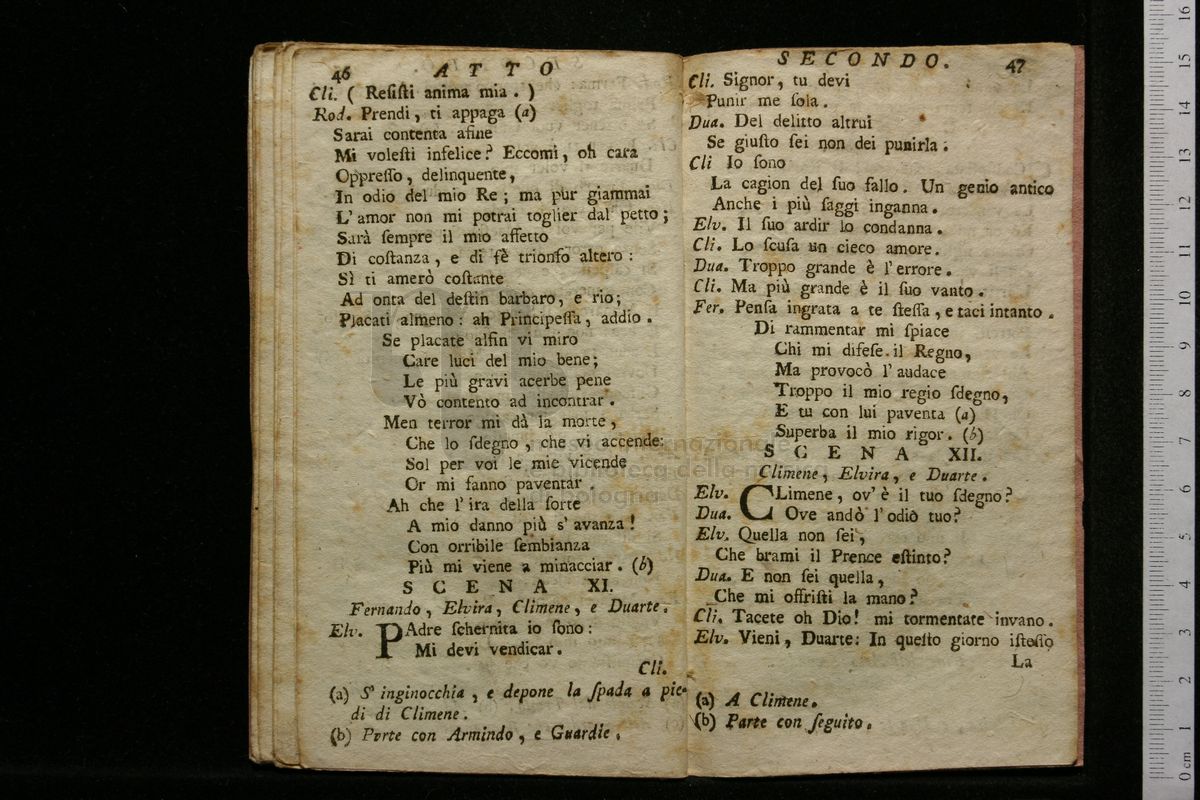 46 ATTO
Cli. ( Reſiſti anima mia. )
Rod. Prendi, ti appaga (a)
Sarai contenta afine
Mi voleſti infelice? Eccomi, oh cara
Oppreſſo, delinquente,
In odio del mio Re; ma pur giammai
L' amor non mi potrai toglier dal petto;
Sarà ſempre il mio affetto
Di coſtanza, e di fè trionfo altero:
Sì ti amerò coſtante
Ad onta del deſtin barbaro, e rio;
Placati almeno: ah Principeſſa, addio.
Se placate alfin vi miro
Care luci del mio bene;
Le più gravi acerbe pene
Vò contento ad incontrar.
Men terror mi dà la morte,
Che lo ſdegno, che vi accende:
Sol per voi le mie vicende
Or mi fanno paventar.
Ah che l' ira della ſorte
A mio danno più s' avanza!
Con orribile ſembianza
Più mi viene a minacciar. (b)
SCENA XI.
Fernando, Elvira, Climene, e Duarte.
Elv. PAdre ſchernita io ſono:
Mi devi vendicar.
Cli.
(a) S' inginocchia, e depone la ſpada a pie-
di di Climene.
(b) Parte con Armindo, e Guardie.
SECONDO. 47
Cli. Signor, tu devi
Punir me ſola.
Dua. Del delitto altrui
Se giuſto ſei non dei punirla.
Cli Io ſono
La cagion del ſuo fallo. Un genio antico
Anche i più ſaggi inganna.
Elv. Il ſuo ardir lo condanna.
Cli. Lo ſcuſa un cieco amore.
Dua. Troppo grande è l' errore.
Cli. Ma più grande è il ſuo vanto.
Fer. Penſa ingrata a te ſteſſa, e taci intanto.
Di rammentar mi ſpiace
Chi mi difeſe il Regno,
Ma provocò l' audace
Troppo il mio regio ſdegno,
E tu con lui paventa (a)
Superba il mio rigor. (b)
SCENA XII.
Climene, Elvira, e Duarte.
Elv. CLimene, ov' è il tuo ſdegno?
Dua. Ove andò l' odiò tuo?
Elv. Quella non ſei,
Che brami il Prence eſtinto?
Dua. E non ſei quella,
Che mi offriſti la mano?
Cli. Tacete oh Dio! mi tormentate invano.
Elv. Vieni, Duarte: In queſto giorno iſteſſo
La
(a) A Climene.
(b) Parte con ſeguito.